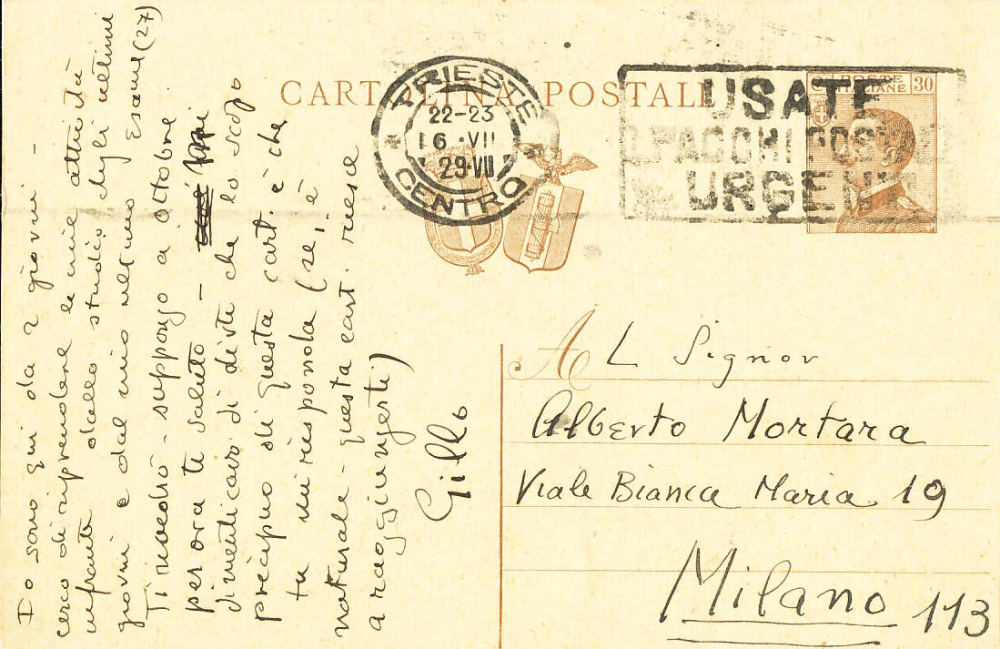 CARTOLINA POSTALE
TRIESTE
22-23
16 · VII
29·VII
CENTRO
USATE
I PACCHI POSTALI
URGENTI
POSTE
ITALIANE
30
Io sono qui da 2 giorni -
cerco di riprendere le mie attività
infranta dallo studio degli ultimi
giorni e dal mio ultimo esame (27)
Ti rivedrò - suppongo a Ottobre
per ora ti saluto -
dimenticavo di dirti che lo scopo
precipuo di questa cart. è che
tu mi risponda (se, è
naturale - questa cart. riesce
a raggiungerti)
Gillo
Al Signor
Alberto Mortara
Viale Bianca Maria 19
Milano 113